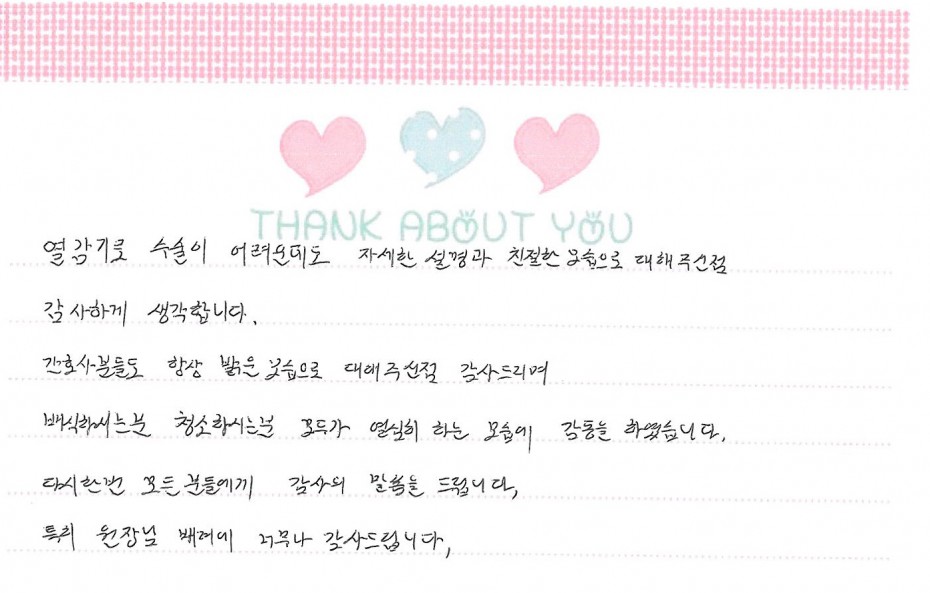 THANK ABOUT YOU
열감기로 수술이 어려운데도 자세한 설명과 친절한 모습으로 대해주신점
감사하게 생각합니다.
간호사분들도 항상 밝은 모습으로 대해주신점 감사드리며
배식하시는분 청소하시는분 모두가 열심히 하는 모습에 감동을 하였습니다.
다시한번 모든분들에게 감사의 말씀을 드립니다,
특히 원장님 배려에 너무나 감사드립니다,